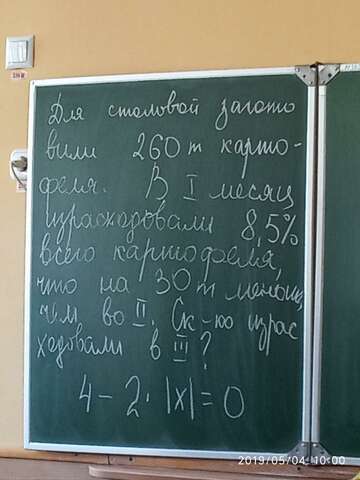 Для столовой загото
вили 260 т карто-
феля. В I месяц
израсходовали 8,5%
всего картофеля,
что на 30 т меньш,
чем во II. Ск-ко израс
ходовали в III?
4 - 2 · |x| = 0
2019/05/04 10:06